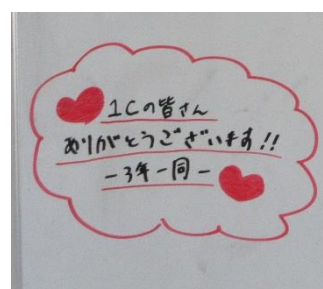 1Cの皆さん
ありがとうございます!!
-3年一同-